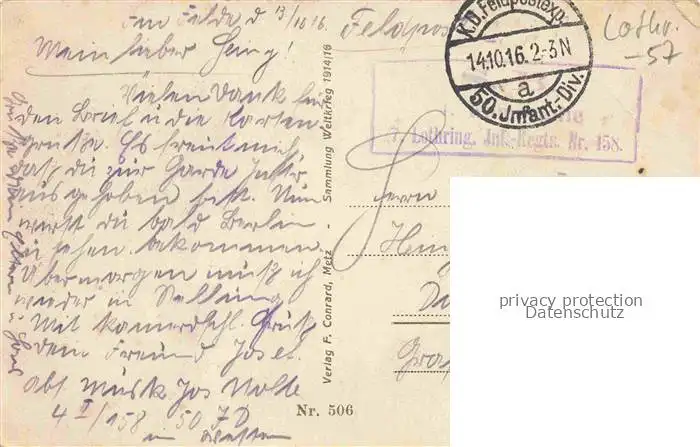 Im Felde d 13/10 16
Mein lieber
Vielen Dank für
den Brief u die Karten-
grüße. Es freut mich
daß du zur Garde
ausgehoben bist. Nun
wirst du bald Berlin
zu sehen bekommen.
Übermorgen muß ich
wieder in Stellung
Mit kameradschl. Gruß
dein Freund Josef.
Abs. Musk Jos Nolte
4 I/158 50 JD
im Westen
Verlag F. Conrard, Metz
Sammlung Weltkrieg 1914/16
Nr. 506
Feldpos
K.D.Feldpostexp.
14.10.16. 2-3N
a
50. Jnfant.-Div.
Lothr.
-57
7. Lothring. Inf.-Regts. Nr. 158.
Herrn
privacy protection
Datenschutz